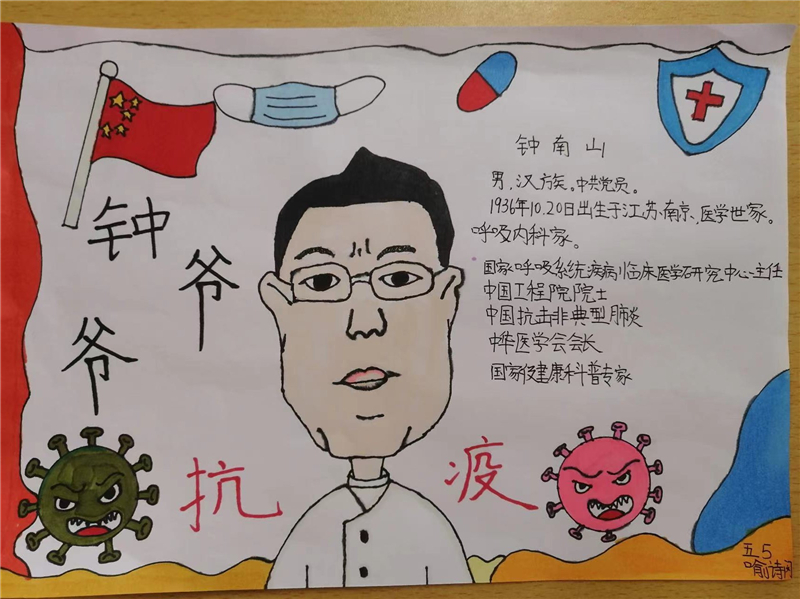 钟爷爷
抗疫
钟南山
男,汉族。中共党员。
1936年10.20日出生于江苏、南京、医学世家。
呼吸内科家。
国家呼吸系统疾病临床医学研究中心主任
中国工程院院士
中国抗击非典型肺炎
中华医学会会长
国家健康科普专家
五5
喻诗